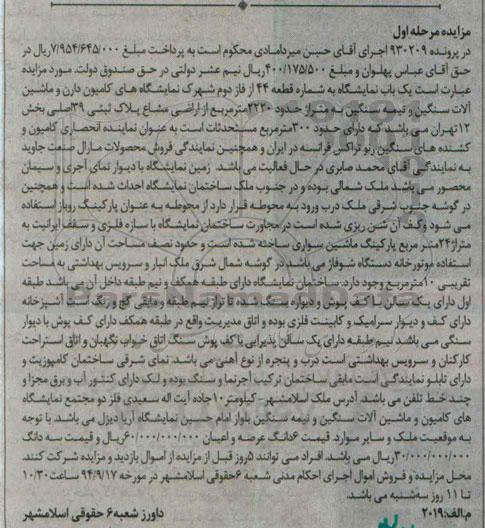 مزایده مرحله اول
در پرونده ۹۳۰۲۰۹ اجرای آقای حسین میردامادی محکوم است به پرداخت مبلغ ۷/۹۵۴/۶۴۵/۰۰۰ریال در
حق آقای عباس پهلوان و مبلغ ۴۰۰/۱۷۵/۵۰۰ریال نیم عشر دولتی در حق صندوق دولت. مورد مزایده
عبارت است یک باب نمایشگاه به شماره قطعه ۴۴ از فاز دوم شهرک نمایشگاه های کامیون دارن و ماشین
آلات سنگین و نیمه سنگین به متراژ حدود ۲۲۲۰مترمربع از اراضی مشاع پلاک ثبتی ۳۹اصلی بخش
۱۲تهران می باشد که دارای حدود ۳۰۰مترمربع مستحدثات است به عنوان نماینده انحصاری کامیون و
کشنده های سنگین رنو تراکس فرانسه در ایران و همچنین نمایندگی فروش محصولات مارال صنعت جاوید
به نمایندگی آقای محمد صابری در حال فعالیت می باشد. زمین نمایشگاه با دیوار نمای آجری و سیمان
محصور می باشد ملک شمالی بوده و در جنوب ملک ساختمان نمایشگاه احداث شده است و همچنین
در گوشه جنوب شرقی ملک درب ورود به محوطه قرار دارد از محوطه به عنوان پارکینگ روباز استفاده
می شود وکف آن شن ریزی شده است در مجاورت ساختمان نمایشگاه با سازه فلزی و سقف ایرانیت به
متراژ۲۴متر مربع پارکینگ ماشین سواری ساخته شده است و حدود نصف مساحت آن دارای زمین جهت
استفاده موتورخانه دستگاه شوفاژ می باشد در گوشه شمال شرق ملک انبار و سرویس بهداشتی به مساحت
تقریبی ۱۰مترمربع وجود دارد. ساختمان نمایشگاه دارای طبقه همکف و نیم طبقه داخل آن می باشد طبقه
اول دارای یک سالن با کف پوش و دیواره سنگ شده تا تراز نیم طبقه و مابقی گچ و رنگ است آشپزخانه
دارای کف و دیوار سرامیک و کابینت فلزی بوده و اتاق مدیریت واقع در طبقه همکف دارای کف پوش با دیوار
سنگی می باشد نیم طبقه دارای یک سالن پذیرایی با کف پوش سنگ اتاق خواب نگهبان و اتاق استراحت
کارکنان و سرویس بهداشتی است درب و پنجره از نوع آهنی می باشد. نمای شرقی ساختمان کامپوزیت و
دارای تابلو نمایندگی است مابقی ساختمان ترکیب آجرنما و سنگ بوده و لک دارای کنتور آب و برق مجزا و
چند خط تلفن می باشد. آدرس ملک اسلامشهر- کیلومتر۱۰جاده آیت اله سعیدی فلز دو مجتمع نمایشگاه
های کامیون و ماشین آلات سنگین و نیمه سنگین بلوار امام حسین نمایشگاه آریا دیزل می باشد. با توجه
به موقعیت ملک و سایر موارد، قیمت ۶دانگ عرصه و اعیان ۶۰/۰۰۰/۰۰۰/۰۰۰ریال و قیمت سه دانگ
۳۰/۰۰۰/۰۰۰/۰۰۰ریال می باشد. افراد می توانند ۵روز قبل از مزایده از اموال بازدید و مزایده شرکت کنند.
محل مزایده و فروش اموال اجرای احکام مدنی شعبه ۶حقوقی اسلامشهر در مورخه ۹۴/۹/۱۷ ساعت ۱۰/۳۰
تا ۱۱ روز سه‌شنبه می باشد.
م.الف:۲۰۱۹ داورز شعبه ۶ حقوقی اسلامشهر